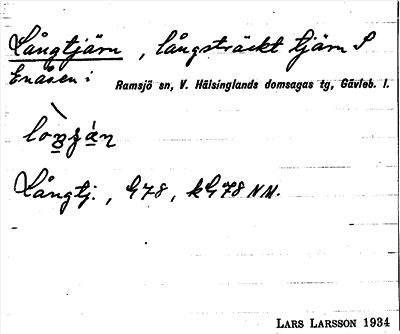 Långtjärn, långsträckt tjärn S
Enåsen:
Ramsjö sn, V. Hälsinglands domsagas tg, Gävleb. l.
Långtj., G78, kG78 NN.
LARS LARSSON 1934